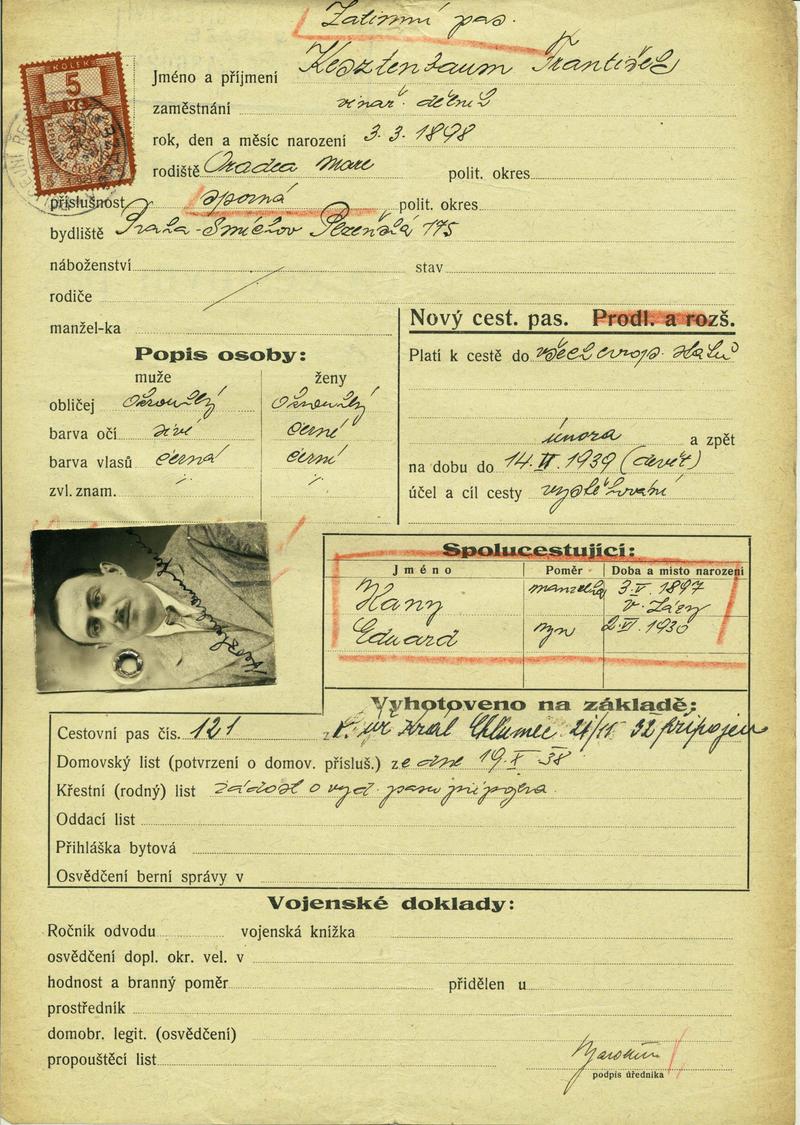 Zatimní pas.
KOLEK
5
Kč
Jméno a příjmení Kesztenbaum František
zaměstnání vinař. dělník
rok, den a měsíc narození 3. 3. 1898
rodiště Oradea Mare polit. okres
příslušnost sporná polit. okres
bydliště Praha-Smíchov Plzeňská 175
náboženství stav
rodiče
manžel-ka
Nový cest. pas. Prodl. a rozš.
Platí k cestě do všech evrop. států
února a zpět
na dobu do 14. II. 1939 (devět)
účel a cíl cesty vystěhování
Popis osoby:
muže ženy
obličej okrouhlý okrouhlý
barva očí sivé černé
barva vlasů černá černí
zvl. znam.
Spolucestující:
Jméno Poměr Doba a místo narození
Hany manželka 3. V. 1897
v
Eduard syn 2. VI. 1930
Vyhotoveno na základě:
Cestovní pas čís. 121 z Král Chlumec 32 připojen
Domovský list (potvrzení o domov. přísluš.) ze dne 19. X 38
Křestní (rodný) list žádost o vyd. pasu připojena.
Oddací list
Přihláška bytová
Osvědčení berní správy v
Vojenské doklady:
Ročník odvodu vojenská knížka
osvědčení dopl. okr. vel. v
hodnost a branný poměr přidělen u
prostředník
domobr. legit. (osvědčení)
propouštěcí list
podpis úředníka